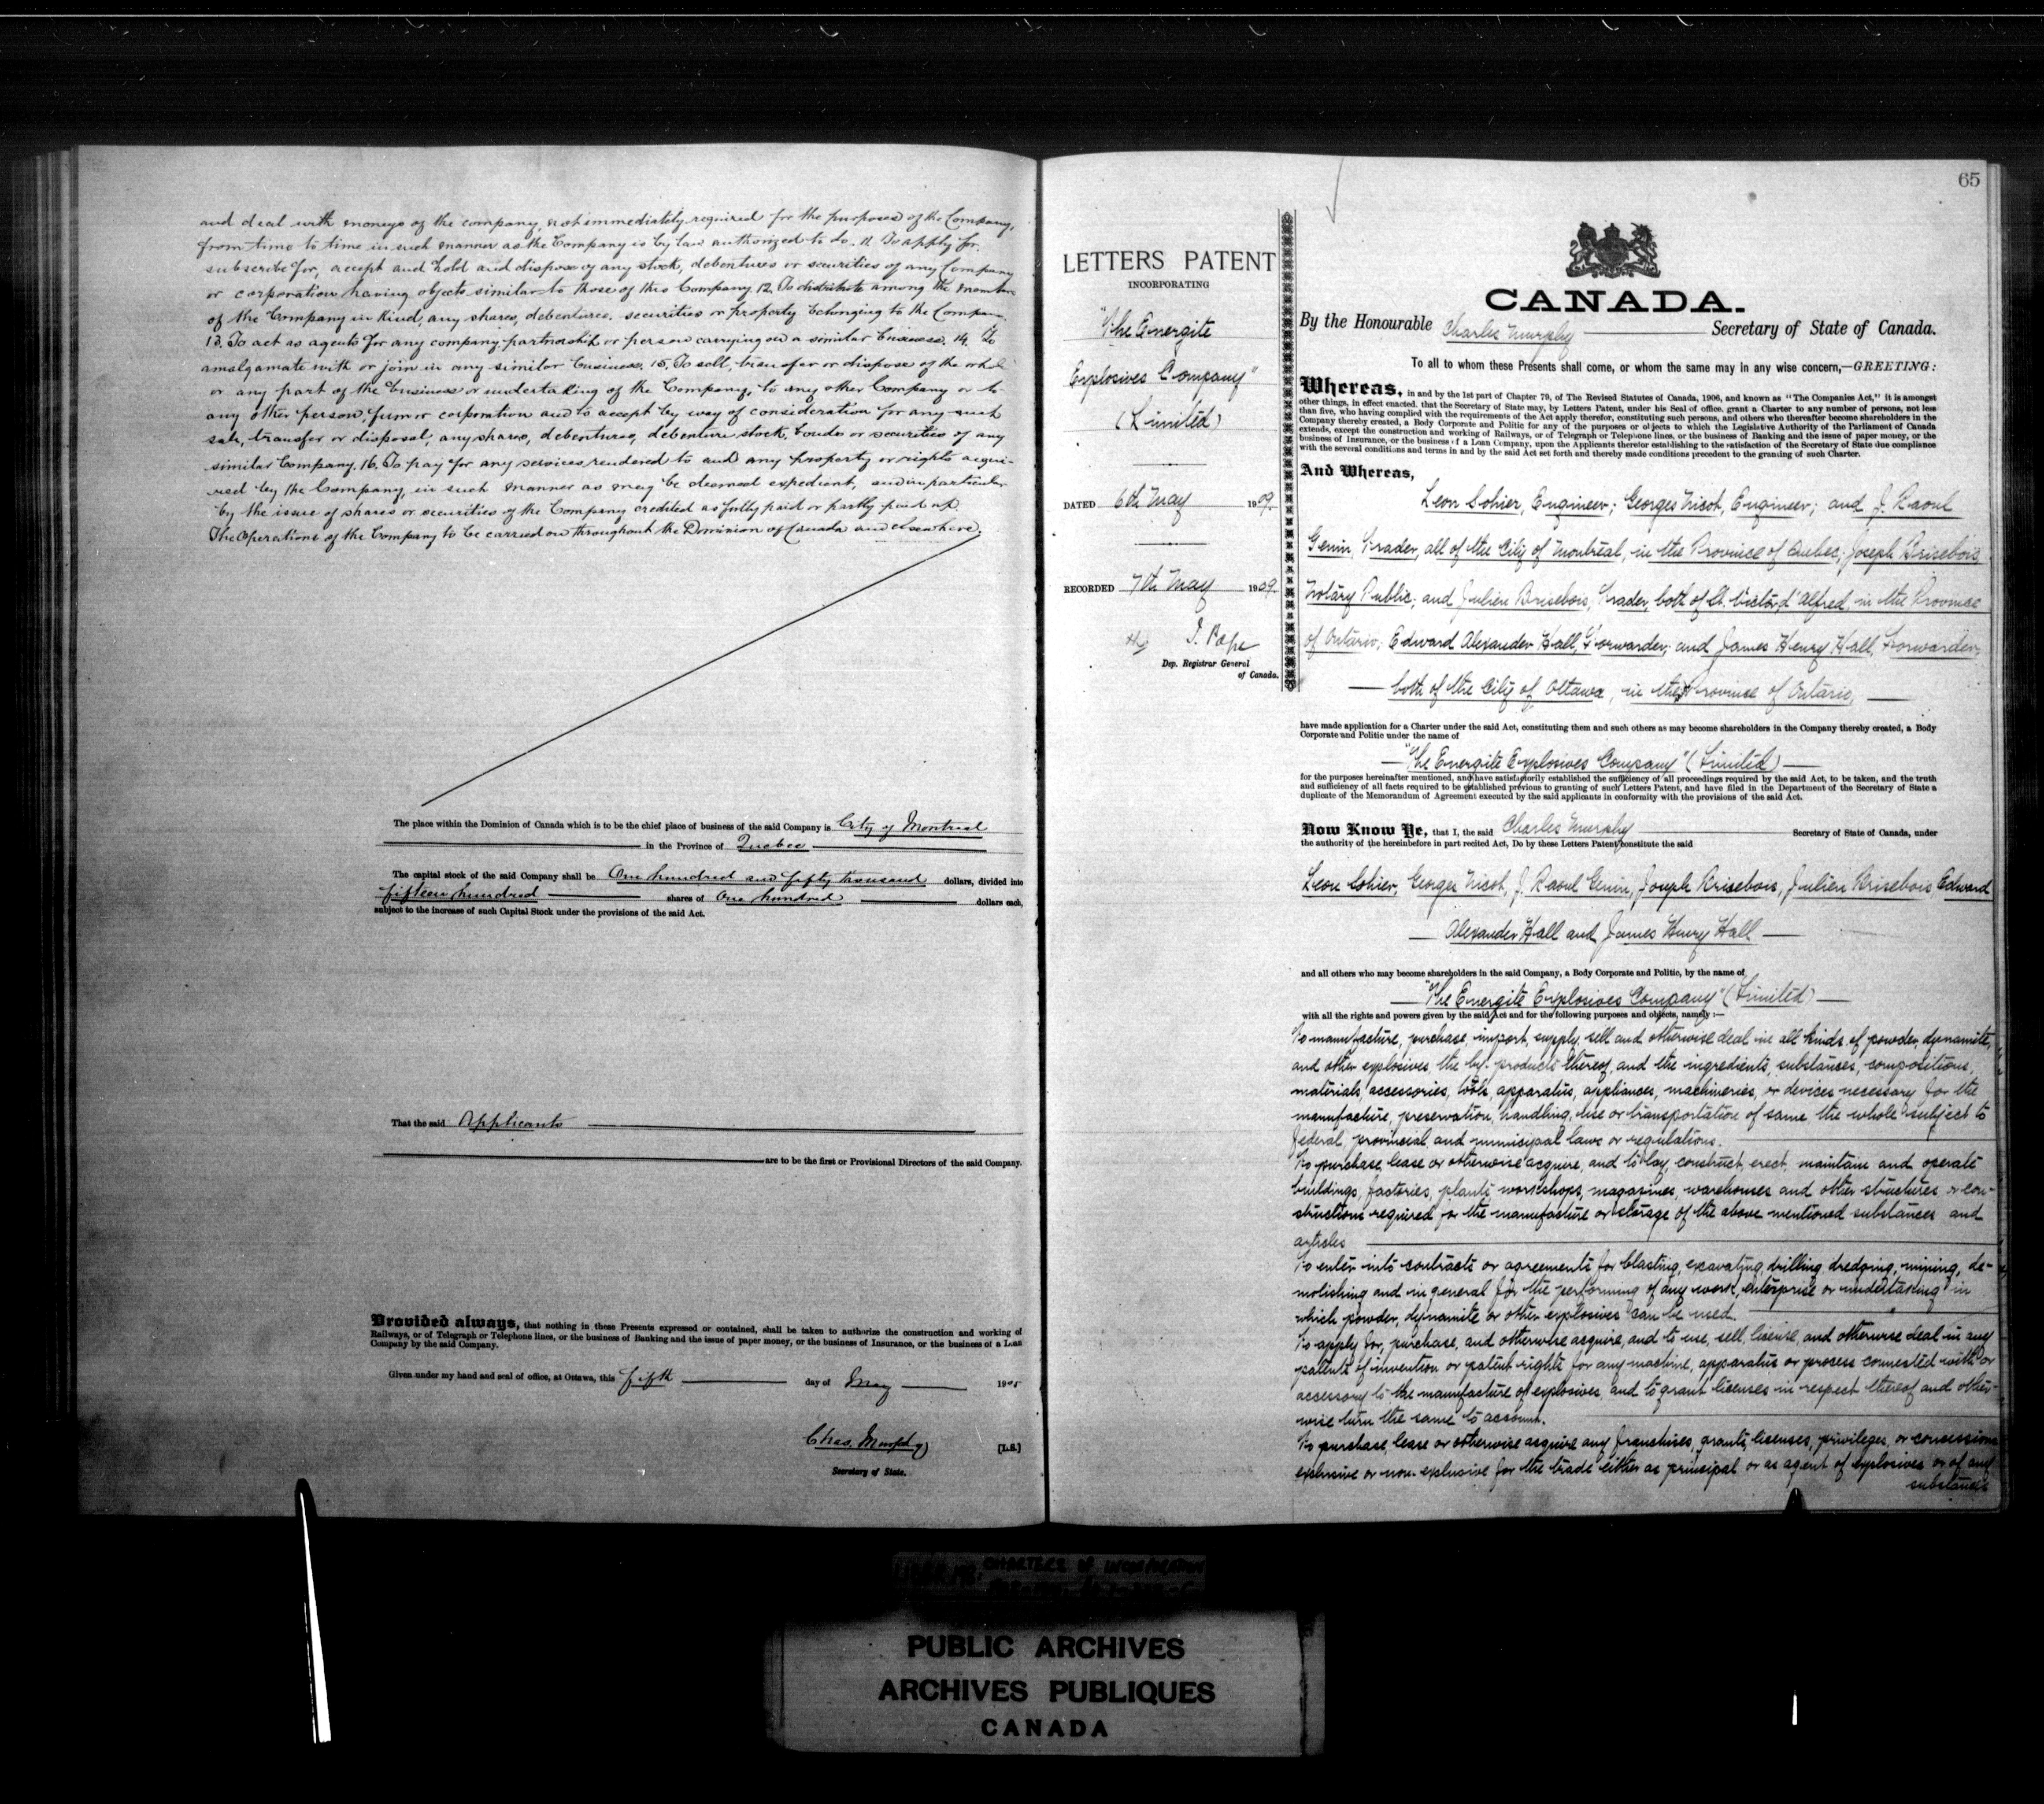 and deal with moneys of the company, not immediately required for the purposes of the Company,
from time to time in such manner as the Company is by law authorized to do. 11. To apply for,
subscribe for, accept and hold and dispose of any stock, debentures or securities of any Company
or corporation having objects similar to those of this Company. 12. To distribute among the members
of the Company in kind, any shares, debentures, securities or property belonging to the Company.
13. To act as agents for any company, partnership or person carrying on a similar business. 14. To
amalgamate with or join in any similar business. 15. To sell, transfer or dispose of the whole
or any part of the business or undertaking of the Company, to any other Company or to
any other person, firm or corporation and to accept by way of consideration for any such
sale, transfer or disposal, any shares, debentures, debenture stock, bonds or securities of any
similar Company. 16. To pay for any services rendered to and any property or rights acqui-
red by the Company, in such manner as may be deemed expedient, and in particular
by the issue of shares or securities of the Company credited as fully paid or partly paid up.
The Operations of the Company to be carried on throughout the Dominion of Canada and elsewhere.
The place within the Dominion of Canada which is to be the chief place of business of the said Company is City of Montreal
in the Province of Quebec
The capital stock of the said Company shall be One hundred and fifty thousand dollars, divided into
fifteen hundred shares of One hundred dollars each,
subject to the increase of such Capital Stock under the provisions of the said Act.
That the said Applicants
are to be the first or Provisional Directors of the said Company.
Provided always, that nothing in these Presents expressed or contained, shall be taken to authorize the construction and working of
Railways, or of Telegraph or Telephone lines, or the business of Banking and the issue of paper money, or the business of Insurance, or the business of a Loan
Company by the said Company.
Given under my hand and seal of office, at Ottawa, this fifth day of May 190
Chas. Murphy [L.S.]
Secretary of State.
65
LETTERS PATENT
INCORPORATING
"The Energite
Explosives Company"
(Limited)
DATED 6th May 1909.
RECORDED 7th May 1909.
J. Pope
Dep. Registrar General
of Canada.
CANADA.
By the Honourable Charles Murphy Secretary of State of Canada.
To all to whom these Presents shall come, or whom the same may in any wise concern,—GREETING:
Whereas, in and by the 1st part of Chapter 79, of The Revised Statutes of Canada, 1906, and known as "The Companies Act," it is amongst
other things, in effect enacted, that the Secretary of State may, by Letters Patent, under his Seal of office, grant a Charter to any number of persons, not less
than five, who having complied with the requirements of the Act apply therefor, constituting such persons, and others who thereafter become shareholders in the
Company thereby created, a Body Corporate and Politic for any of the purposes or objects to which the Legislative Authority of the Parliament of Canada
extends, except the construction and working of Railways, or of Telegraph or Telephone lines, or the business of Banking and the issue of paper money, or the
business of Insurance, or the business of a Loan Company, upon the Applicants therefor establishing to the satisfaction of the Secretary of State due compliance
with the several conditions and terms in and by the said Act set forth and thereby made conditions precedent to the granting of such Charter.
And Whereas,
Leon Lohier, Engineer; Georges Nicot, Engineer; and J. Raoul
Genin, Trader, all of the City of Montreal, in the Province of Quebec; Joseph Brisebois,
Notary Public; and Julien Brisebois, Trader, both of St. Victor d'Alfred, in the Province
of Ontario; Edward Alexander Hall, Forwarder; and James Henry Hall, Forwarder,
both of the City of Ottawa, in the Province of Ontario,
have made application for a Charter under the said Act, constituting them and such others as may become shareholders in the Company thereby created, a Body
Corporate and Politic under the name of
"The Energite Explosives Company" (Limited)
for the purposes hereinafter mentioned, and have satisfactorily established the sufficiency of all proceedings required by the said Act, to be taken, and the truth
and sufficiency of all facts required to be established previous to granting of such Letters Patent, and have filed in the Department of the Secretary of State a
duplicate of the Memorandum of Agreement executed by the said applicants in conformity with the provisions of the said Act.
Now Know Ye, that I, the said Charles Murphy Secretary of State of Canada, under
the authority of the hereinbefore in part recited Act, Do by these Letters Patent constitute the said
Leon Lohier, Georges Nicot, J. Raoul Genin, Joseph Brisebois, Julien Brisebois, Edward
Alexander Hall and James Henry Hall
and all others who may become shareholders in the said Company, a Body Corporate and Politic, by the name of
"The Energite Explosives Company" (Limited)
with all the rights and powers given by the said Act and for the following purposes and objects, namely:—
To manufacture, purchase, import, supply, sell and otherwise deal in all kinds of powder, dynamite,
and other explosives, the by-products thereof, and the ingredients, substances, compositions,
materials, accessories, tools, apparatus, appliances, machineries, or devices necessary for the
manufacture, preservation, handling, use or transportation of same, the whole subject to
federal, provincial and municipal laws or regulations.
To purchase, lease or otherwise acquire, and to lay, construct, erect, maintain and operate
buildings, factories, plants, workshops, magazines, warehouses and other structures or con-
structions required for the manufacture or storage of the above mentioned substances and
articles
To enter into contracts or agreements for blasting, excavating, drilling, dredging, mining, de-
molishing and in general for the performing of any work, enterprise or undertaking in
which powder, dynamite or other explosives can be used.
To apply for, purchase, and otherwise acquire, and to use, sell, license, and otherwise deal in any
patents of invention or patent rights for any machine, apparatus or process connected with or
accessory to the manufacture of explosives, and to grant licenses in respect thereof and other-
wise turn the same to account.
To purchase, lease or otherwise acquire any franchises, grants, licenses, privileges, or concessions
exclusive or non-exclusive for the trade either as principal or as agent of explosives or of any
substances
CHARTERS OF INCORPORATION
PUBLIC ARCHIVES
ARCHIVES PUBLIQUES
CANADA